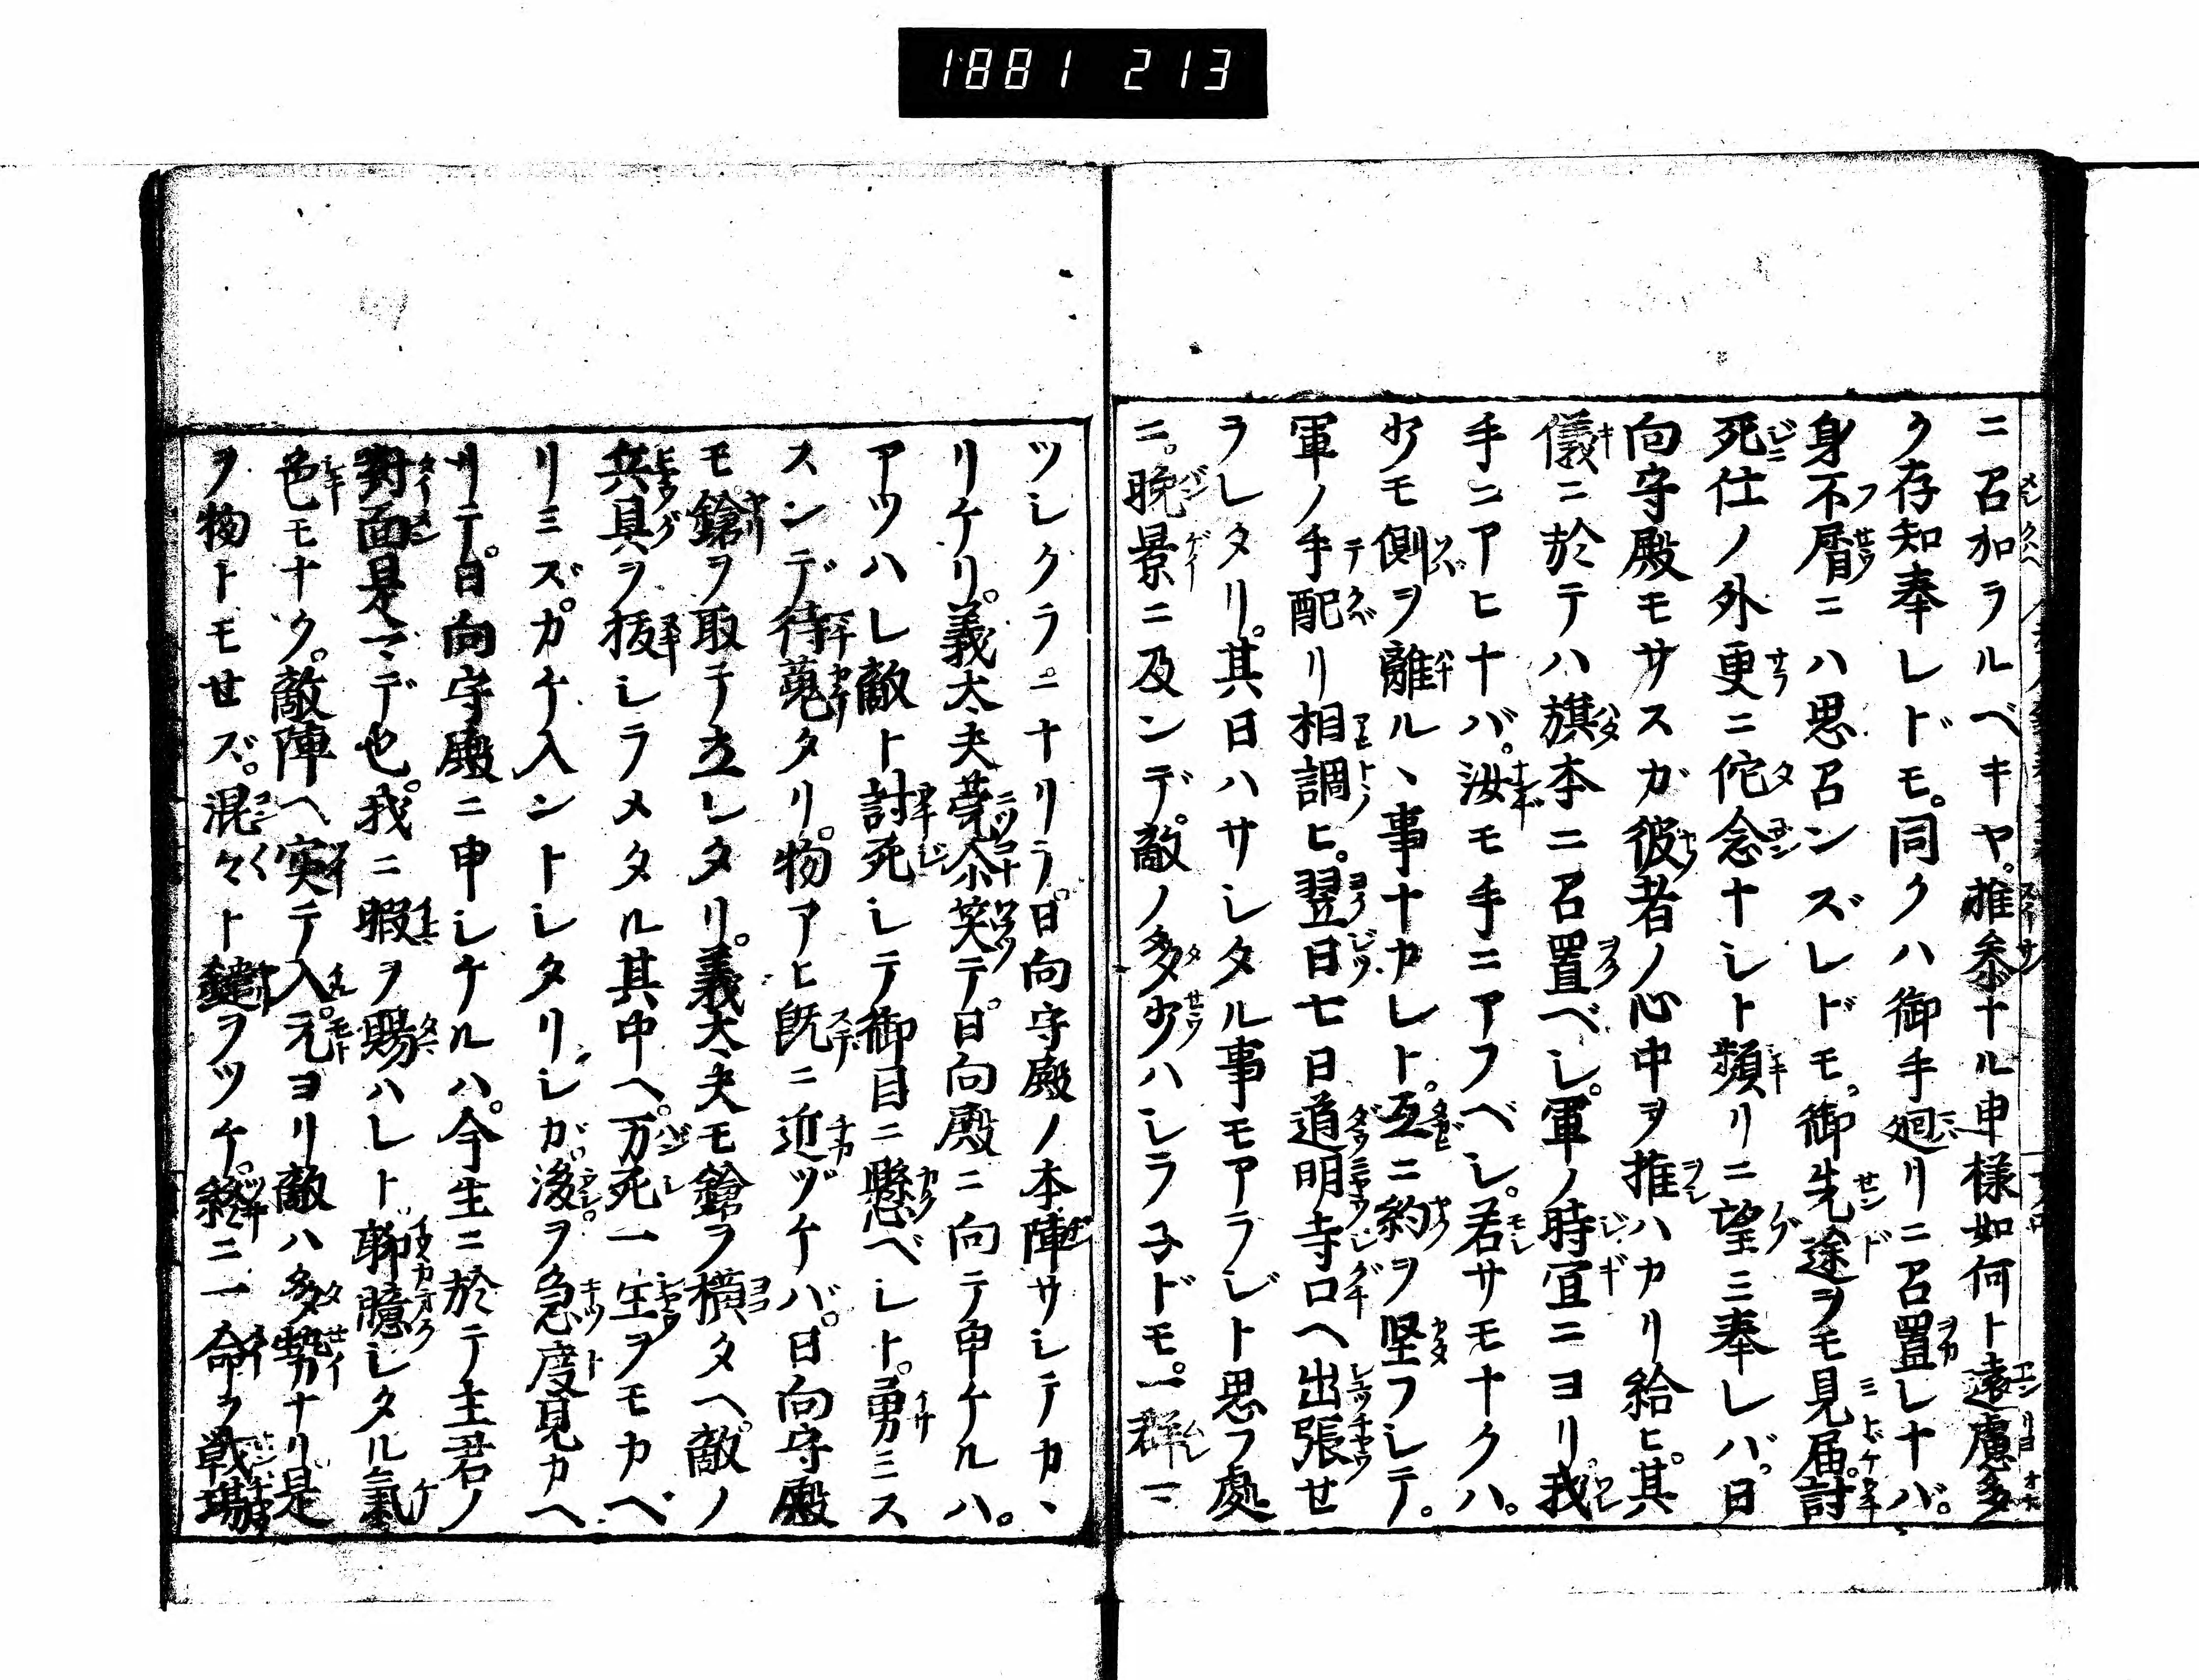 1881 213
ニ召加ラルベキヤ。推参ナル申様如何ト遠慮多
ク存知奉レドモ。同クハ御手廻リニ召置レナバ。
身不屑ニハ思召ンズレドモ。御先途ヲモ見届討
死仕ノ外更ニ佗念ナシト頻リニ望ミ奉レバ。日
向守殿モサスガ彼者ノ心中ヲ推ハカリ給ヒ。其
儀ニ於テハ旗本ニ召置ベし。軍ノ時宜ニヨリ。我
手ニアヒナバ。汝モ手ニアフベし。若サモナクハ。
少モ側ヲ離ル丶事ナカレト。互ニ約ヲ堅フレテ。
軍ノ手配リ相調ヒ。翌日七日道明寺口ヘ出張せ
ラレタリ。其日ハサレタル事モアラジト思フ處
ニ。晩景ニ及ンデ。敵ノ多少ハレラ子ドモ。一群一
ツレクラニナリラ。日向守殿ノ本陣サレテカ丶
リケリ。義太夫莞尓笑テ。日向殿ニ向テ申ケルハ。
アツハレ敵ト討死レテ御目ニ懸ベレト。勇ミス
スンデ待蒐タリ。物アヒ既ニ近ヅケバ。日向守殿
モ鎗ヲ取テ立レタリ。義太夫モ鎗ヲ横タヘ。敵ノ
兵具ヲ抜レラメタル其中ヘ。万死一生ヲモカヘ
リミズ。カケ入ントレタリレガ。後ヲ急度見カヘ
リテ。日向守殿ニ申レケルハ。今生ニ於テ主君ノ
對面是マデ也。我ニ暇ヲ賜ハレト。聊臆レタル氣
色モナク。敵陣ヘ突テ入。元ヨリ敵ハ多勢ナリ。是
ヲ物トモせズ。混々ト鑓ヲツケ。終ニ一命ヲ戦場